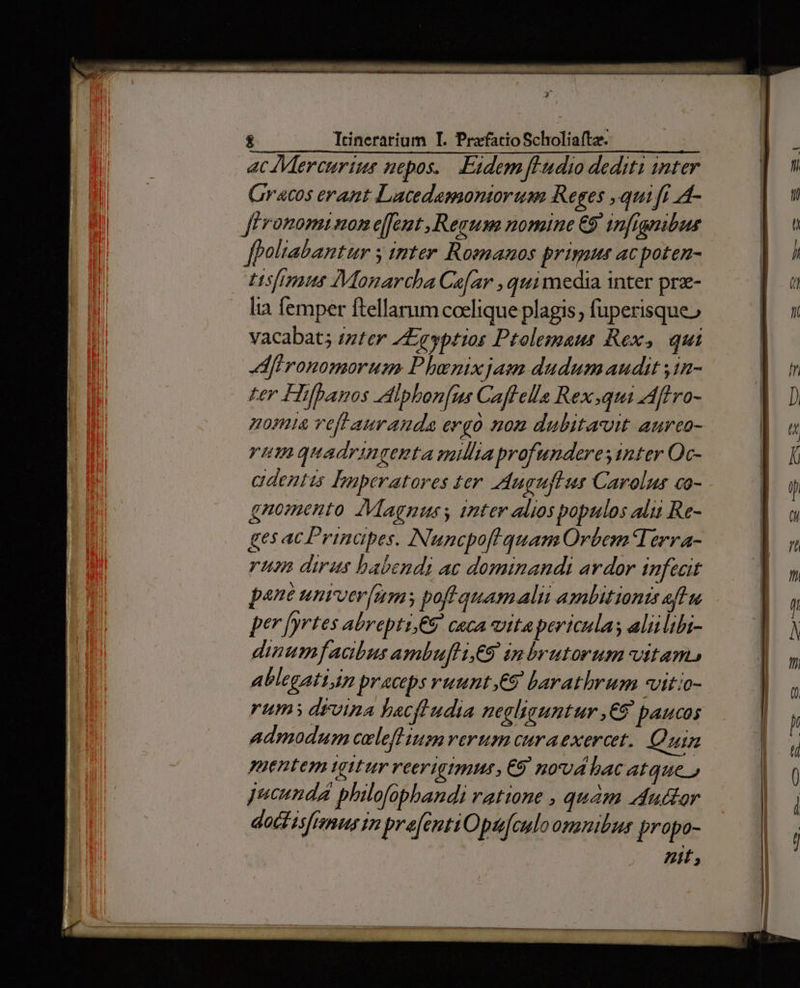 8 Itinerarium I. Præfatio Scholiaſtæ.
ac Mercurius nepos. Eidem ſtudio dediti inter
Græcos erant Lacedæmoniorum Reges , qui ſi A-
ſtronomi non eſſent , Regum nomine & inſignibus
ſpoliabantur ; inter Romanos primus ac poten-
tisſimus Monarcha Cæſar , qui media inter præ-
lia ſemper ſtellarum cœlique plagis, ſuperisque,
vacabat; inter Ægyptios Ptolemæus Rex, qui
Aſtronomorum Phœnix jam dudum audit ; in-
ter Hiſpanos Alphonſus Caſtellæ Rex, qui Aſtro-
nomiâ reſtaurandâ ergò non dubitavit aureo-
rum quadringenta millia profundere; inter Oc-
cidentis Imperatores ter Auguſtus Carolus co-
gnomento Magnus; inter alios populos alii Re-
ges ac Principes. Nunc poſtquam Orbem Terra-
rum dirus habendi ac dominandi ardor infecit
pænè univerſum; poſtquam alii ambitionis æſtu
per ſyrtes abrepti, & cæca vitæ pericula; alii libi-
dinum facibus ambuſti, & in brutorum vitam,
ablegati, in præceps ruunt , & barathrum vitio-
rum; divina hæc ſtudia negliguntur , & paucos
admodum cæleſtium rerum cura exercet. Quin
mentem igitur reerigimus, & novâ hac atque,
jucundâ philoſophandi ratione , quàm Auctor
doctisſimus in præſenti Opuſculo omnibus propo-
nit,